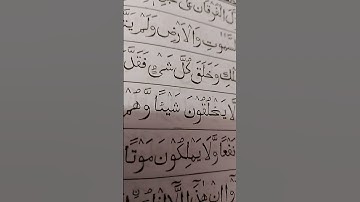 لَ الْفُرْقَانَ عَلٰى
السَّمٰوٰتِ وَالْاَرْضِ وَلَمْ
وَخَلَقَ كُلَّ شَىْءٍ فَقَدَّ
لَّا يَخْلُقُوْنَ شَيْئًا وَّهُمْ
نَفْعًا وَّلَا يَمْلِكُوْنَ مَوْتًا
اِنْ هٰذَآ اِلَّآ